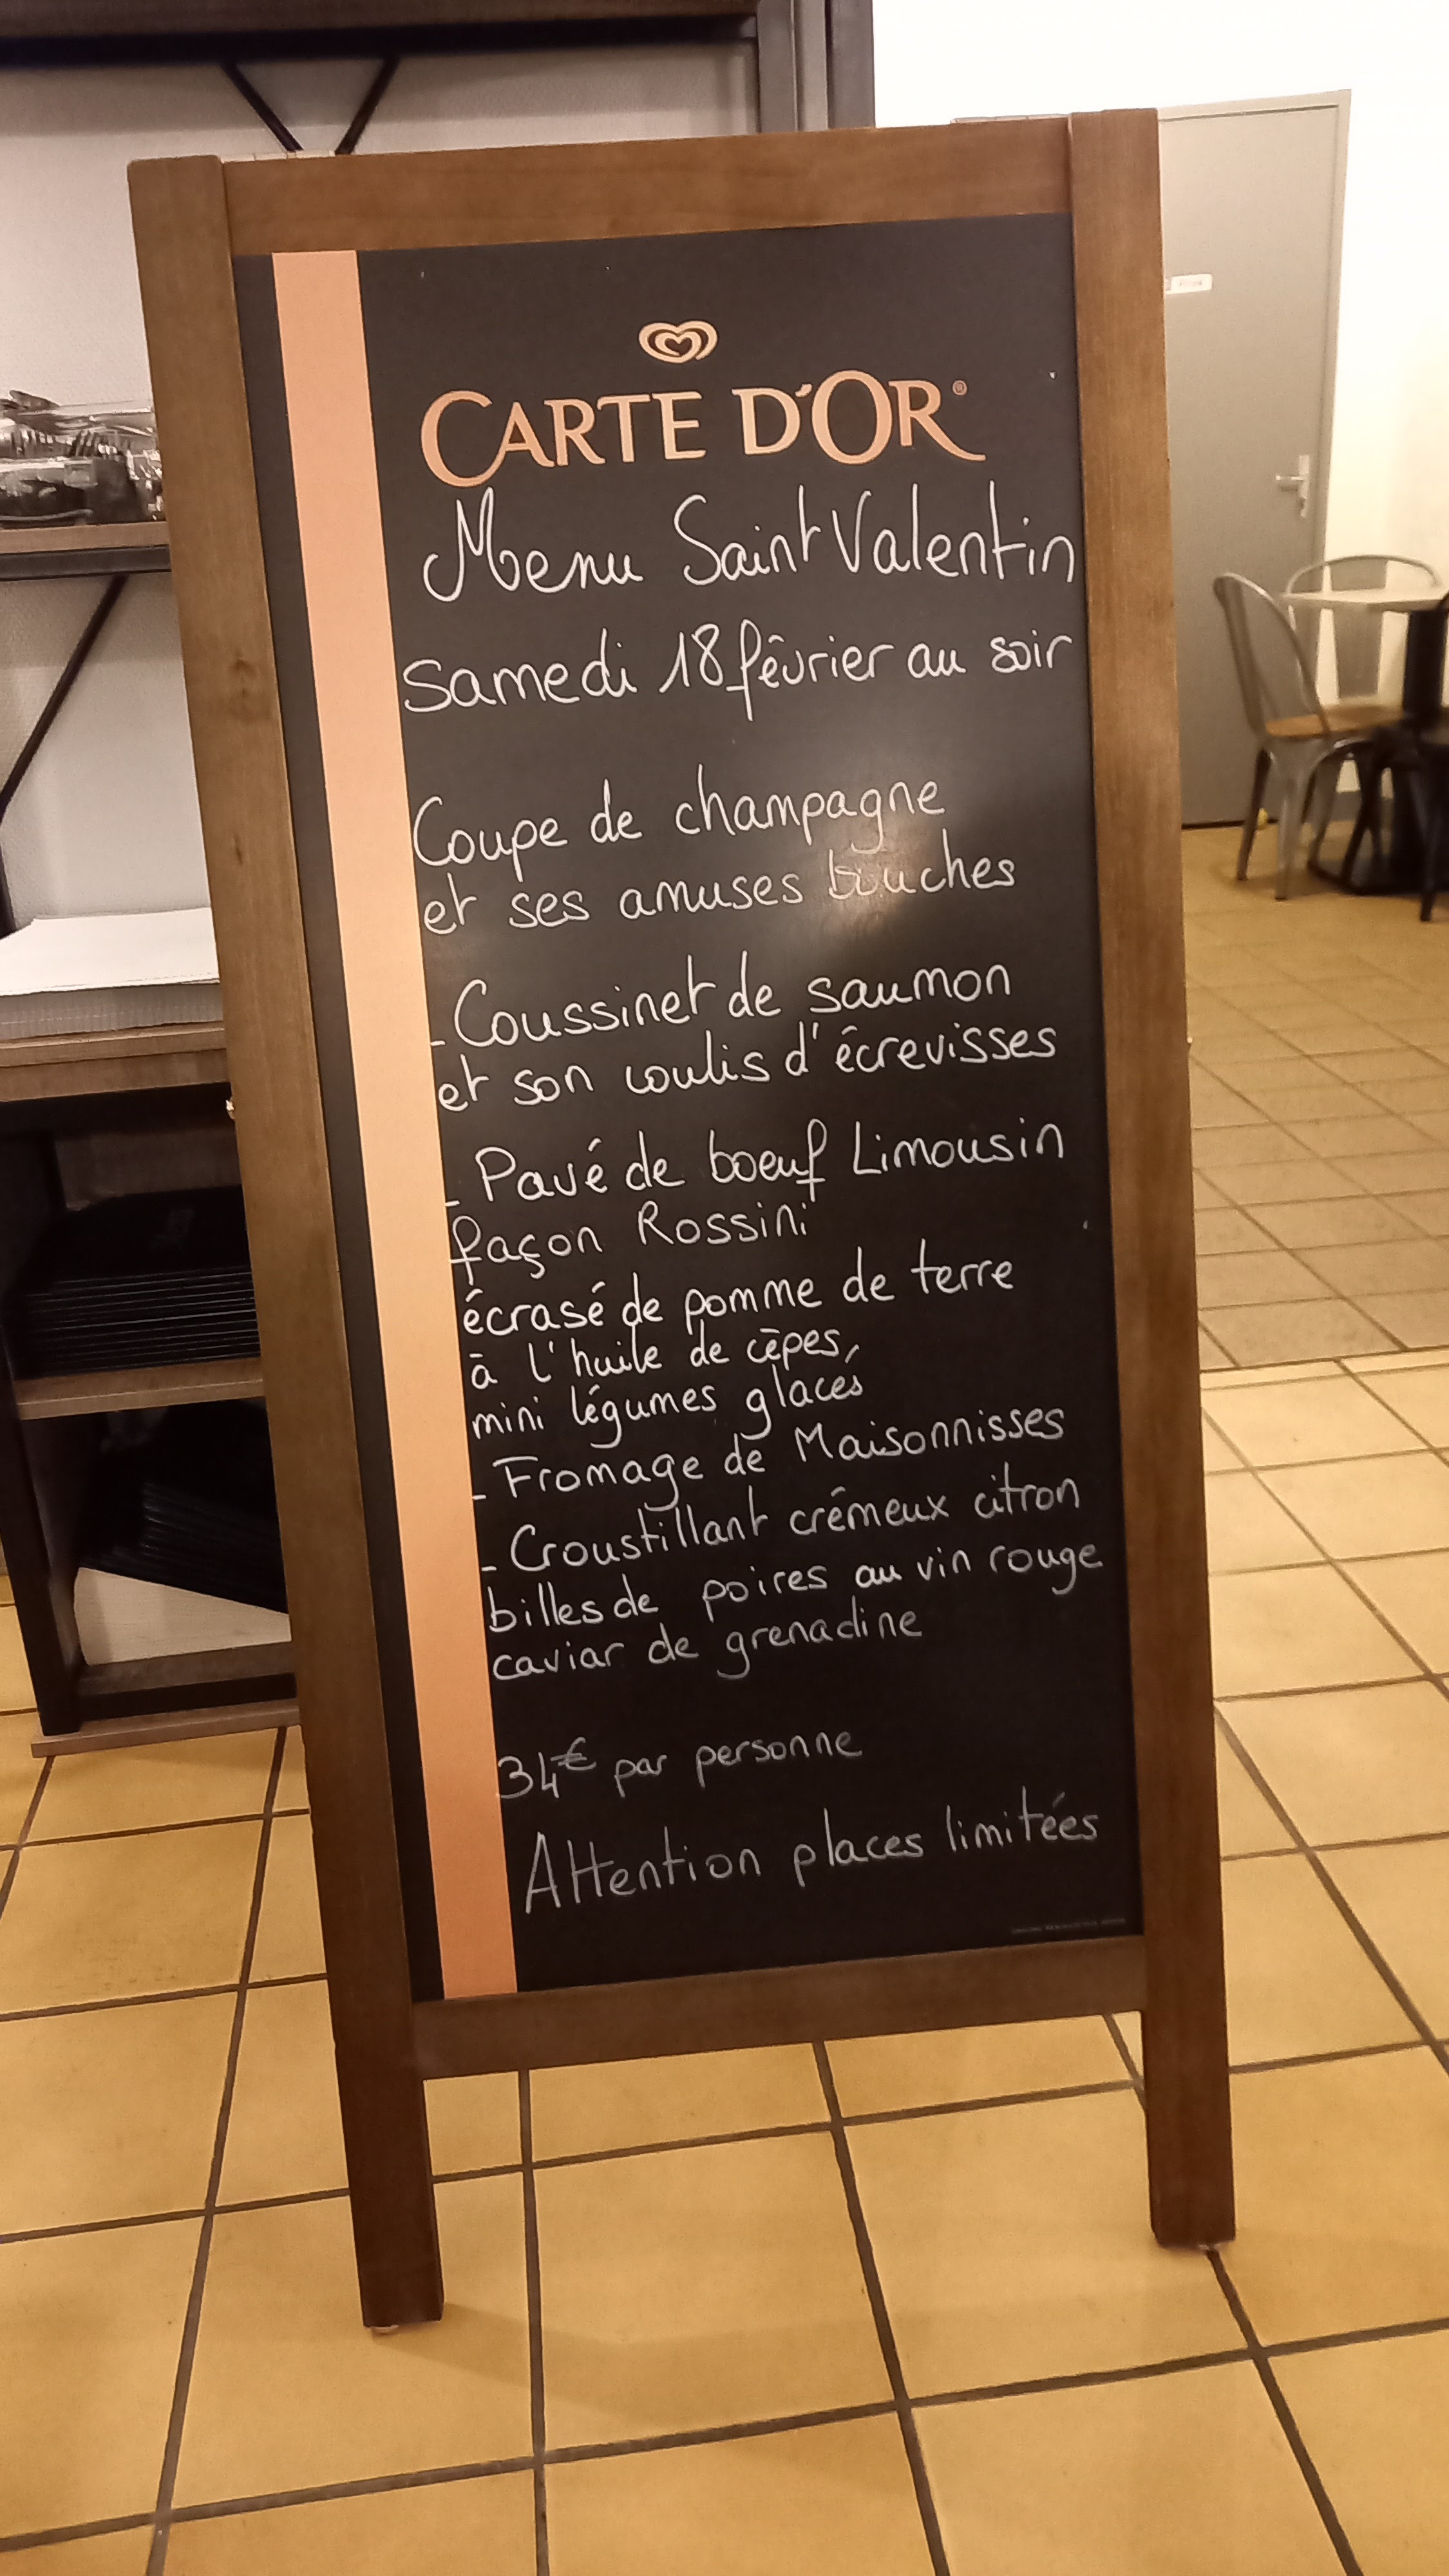 CARTE D'OR®
Menu Saint Valentin
Samedi 18 février au soir
Coupe de champagne
et ses amuses bouches
- Coussinet de saumon
et son coulis d'écrevisses
- Pavé de boeuf Limousin
façon Rossini
écrasé de pomme de terre
à l'huile de cèpes,
mini légumes glacés
- Fromage de Maisonnisses
- Croustillant crémeux citron
billes de poires au vin rouge
caviar de grenadine
34€ par personne
Attention places limitées